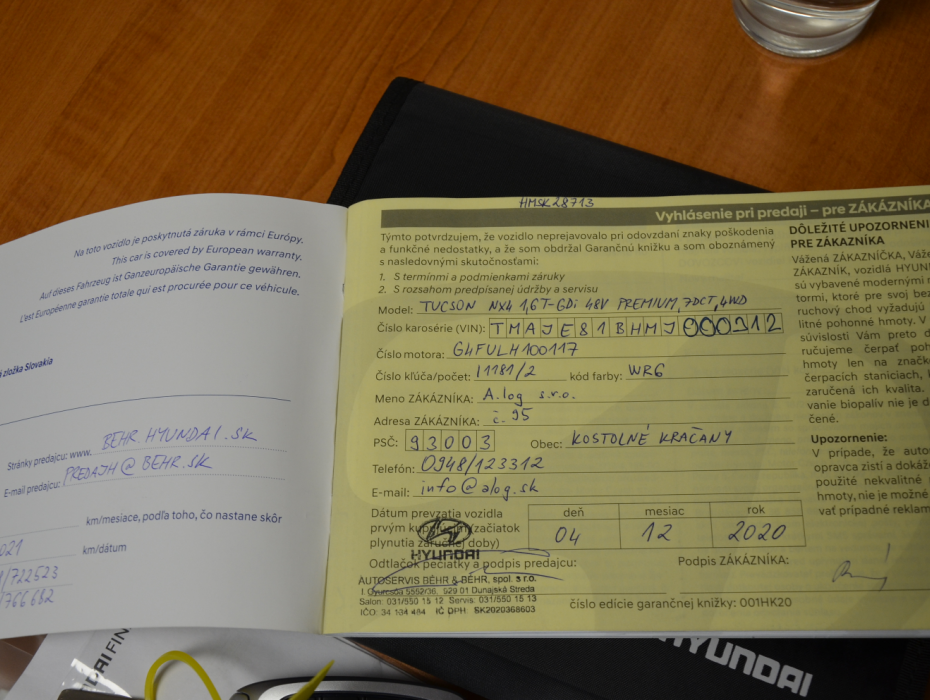 Na toto vozidlo je poskytnutá záruka v rámci Európy.
This car is covered by European warranty.
Auf dieses Fahrzeug ist Ganzeuropäische Garantie gewähren.
L'est Européenne garantie totale qui est procurée pour ce véhicule.
zložka Slovakia
Stránky predajcu: www. BEHR.HYUNDAI.SK
E-mail predajcu: PREDAJH@BEHR.SK
km/mesiace, podľa toho, čo nastane skôr
021 km/dátum
1/722523
1766682
HMSK28713
Vyhlásenie pri predaji – pre ZÁKAZNÍKA
Týmto potvrdzujem, že vozidlo neprejavovalo pri odovzdaní znaky poškodenia
a funkčné nedostatky, a že som obdržal Garančnú knižku a som oboznámený
s nasledovnými skutočnosťami:
1. S termínmi a podmienkami záruky
2. S rozsahom predpísanej údržby a servisu
Model: TUCSON NX4 1,6T-GDi 48V PREMIUM, 7DCT, 4WD
Číslo karosérie (VIN): TMAJE81BHMJ000212
Číslo motora: G4FULH100117
Číslo kľúča/počet: 11181/2 kód farby: WR6
Meno ZÁKAZNÍKA: A.log s.r.o.
Adresa ZÁKAZNÍKA: č. 95
PSČ: 93003 Obec: KOSTOLNÉ KRAČANY
Telefón: 0948/123312
E-mail: info@alog.sk
Dátum prevzatia vozidla
prvým kupujúcim (začiatok
plynutia záručnej doby)
deň mesiac rok
04 12 2020
HYUNDAI
Odtlačok pečiatky a podpis predajcu:
Podpis ZÁKAZNÍKA:
AUTOSERVIS BÉHR & BÉHR, spol. s r.o.
929 01 Dunajská Streda
Salon: 031/550 15 12 Servis: 031/550 15 13
IČ DPH: SK2020368603
číslo edície garančnej knižky: 001HK20
DÔLEŽITÉ UPOZORNENI
PRE ZÁKAZNÍKA
Vážená ZÁKAZNÍČKA, Váže
ZÁKAZNÍK, vozidlá HYUN
sú vybavené modernými
tormi, ktoré pre svoj bez
ruchový chod vyžadujú
litné pohonné hmoty. V
súvislosti Vám preto d
ručujeme čerpať poh
hmoty len na značk
čerpacích staniciach, k
zaručená ich kvalita.
vanie biopalív nie je d
čené.
Upozornenie:
V prípade, že auto
opravca zistí a dokáž
použité nekvalitné
hmoty, nie je možné
vať prípadné reklam
HYUNDAI
DAI FIN